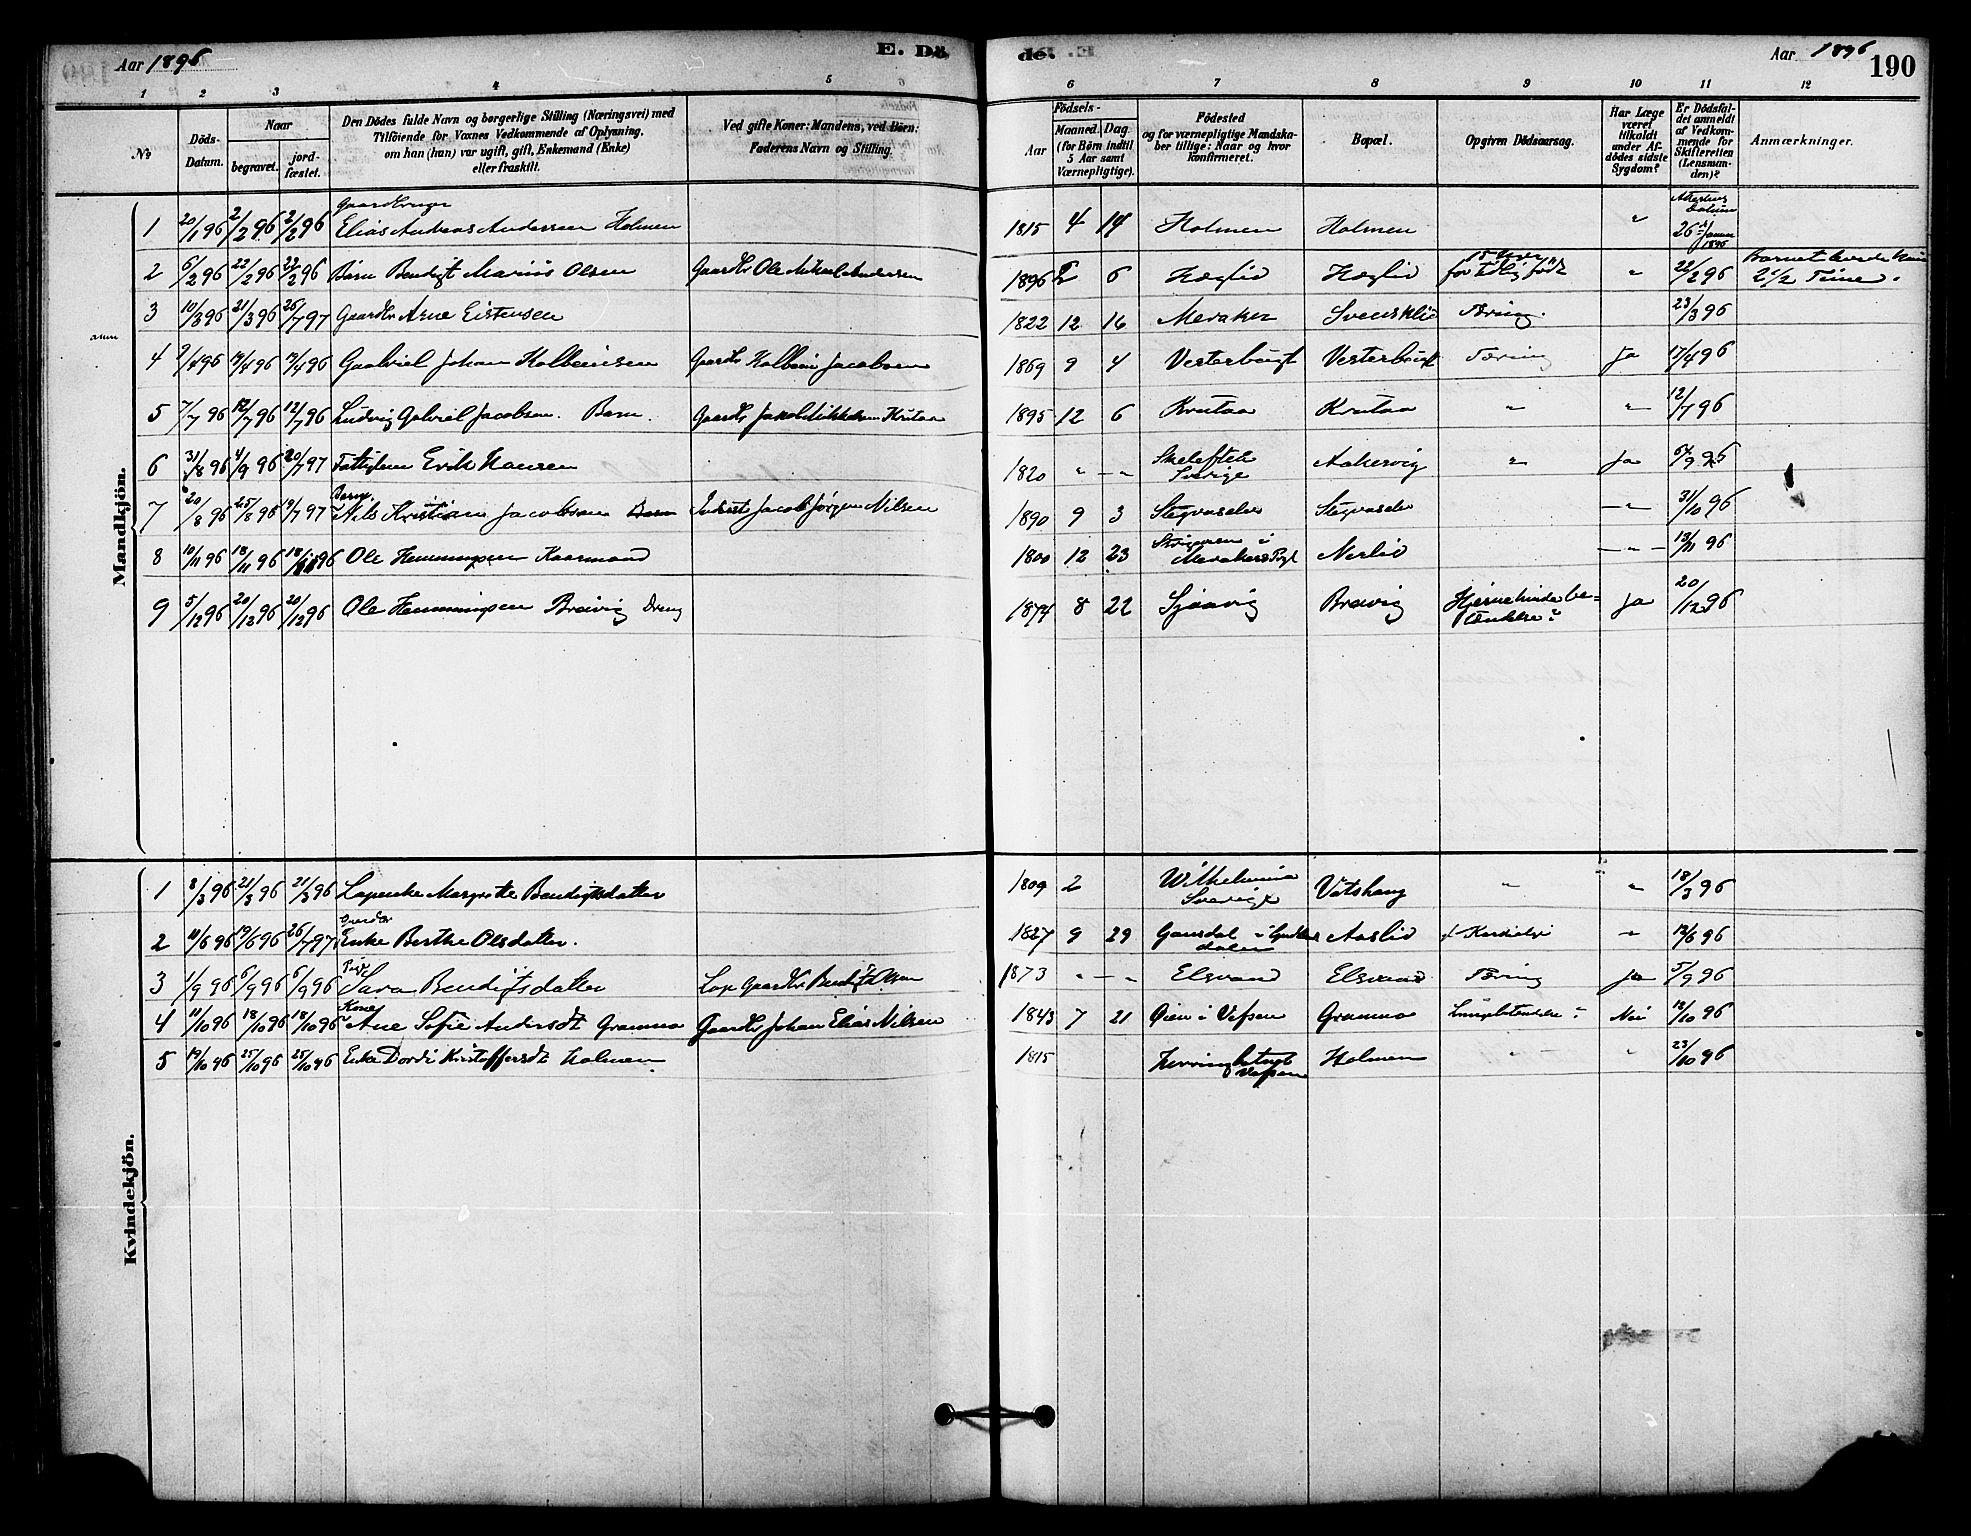 Aar 1896
E. Dö
de.
Aar 1896
190
1 2 3 4 5 6 7 8 9 10 11 12
No
Döds-Datum.
Naar
begravet.
jord-fæstet.
Den Dödes fulde Navn og borgerlige Stilling (Næringsvei) med
Tilföiende for Voxnes Vedkommende af Oplysning,
om han (hun) var ugift, gift, Enkemand (Enke)
eller fraskilt.
Ved gifte Koner: Mandens, ved Börn:
Faderens Navn og Stilling.
Födsels-
Aar
Maaned. Dag
(for Börn indtil
5 Aar samt
Værnepligtige).
Födested
og for værnepligtige Mandska-
ber tillige: Naar og hvor
konfirmeret.
Bopæl.
Opgiven Dödsaarsag.
Har Læge
været
tilkaldt
under Af-
dödes sidste
Sygdom?
Er Dödsfal-
det anmeldt
af Vedkom-
mende for
Skifteretten
(Lensman-
den)?
Anmærkninger.
Mandkjön.
1 20/1 96 2/2 96 2/2 96 Elias Andreas Andersen Holmen 1815 4 14 Holmen Holmen "
2 6/2 96 22/2 96 22/2 96 Barn Bendigt Marius Olsen Gaardbr Ole Mikal Andersen 1896 2 6 Hæglid Hæglid for tidlig født " 22/2 96 Barnet levede kun 2 1/2 Time.
3 10/3 96 21/3 96 25/7 97 Gaardbr Arne Eistensen 1822 12 16 Meraker Svensklid Tæring. 23/3 96
4 9/4 96 17/4 96 17/4 96 Gaabriel Johan Kolbeinsen Gaardbr Kolbein Jacobsen 1869 9 4 Vesterbugt Vesterbugt Tæring Ja 17/4 96
5 7/7 96 12/7 96 12/7 96 Ludvig Gabriel Jacobsen. Barn. Gaardbr Jakob Mikkelsen Krutaa 1895 12 6 Krutaa Krutaa " " 12/7 96
6 31/8 96 4/9 96 20/7 97 Fattiglem Erik Hansen 1820 " " Skelefteå Sverige Aakervig " Ja
7 20/8 96 25/8 96 19/7 97 Barn Nils Kristian Jacobsen Barn Inderst Jacob Jørgen Nilsen 1890 9 3 Stegvaselv Stegvaselv " 31/10 96
8 10/11 96 18/11 96 18/11 96 Ole Hemmingsen Kaarmand 1800 12 23 Nerlid " 13/11 96
9 5/12 96 20/12 96 20/12 96 Ole Hemmingsen Brevig Dreng 1874 8 22 Sjaavig Brevig Hjernehindebe=tændelse? Ja 20/12 96
Kvindekjön.
1 8/3 96 21/3 96 21/3 96 Lapenke Margrethe Bendigtsdatter 1809 2 Wilhelmina Sverige Vatshaug " " 18/3 96
2 11/6 96 19/6 96 26/7 97 Enke Berthe Olsdatter. 1827 9 29 Gausdal i Gudbrandsdalen Aaslid " 12/6 96
3 1/9 96 6/9 96 6/9 96 Pige Sara Bendigtsdatter Lap Gaardbr Bendigt Olsen 1873 " " Elsvand Elsvand Tæring Ja 5/9 96
4 11/10 96 18/10 96 18/10 96 Kone Ane Sofie Andersdt Grannæs Gaardbr Johan Elias Nilsen 1843 7 21 Øien i Vefsen Lungebetændelse? Nei 12/10 96
5 19/10 96 25/10 96 25/10 96 Enke Dordi Kristoffersdt Holmen 1815 Herringbotnet Vefsen Holmen " " 23/10 96